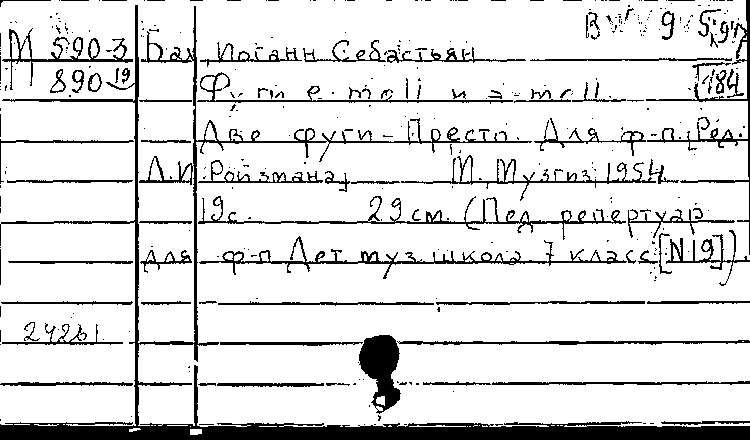 BWV 9
М 590-3 Бах, Иоганн Себастьян
890 19 Фуги e-moll и a-moll. 184
Две фуги-Престо. Для ф-п. [Ред.
Л.И. Ройзмана]. М., Музгиз, 1954.
19с. 29см. (Пед. репертуар
для ф-п. Дет. муз. школа. 7 класс [N19]).
24261